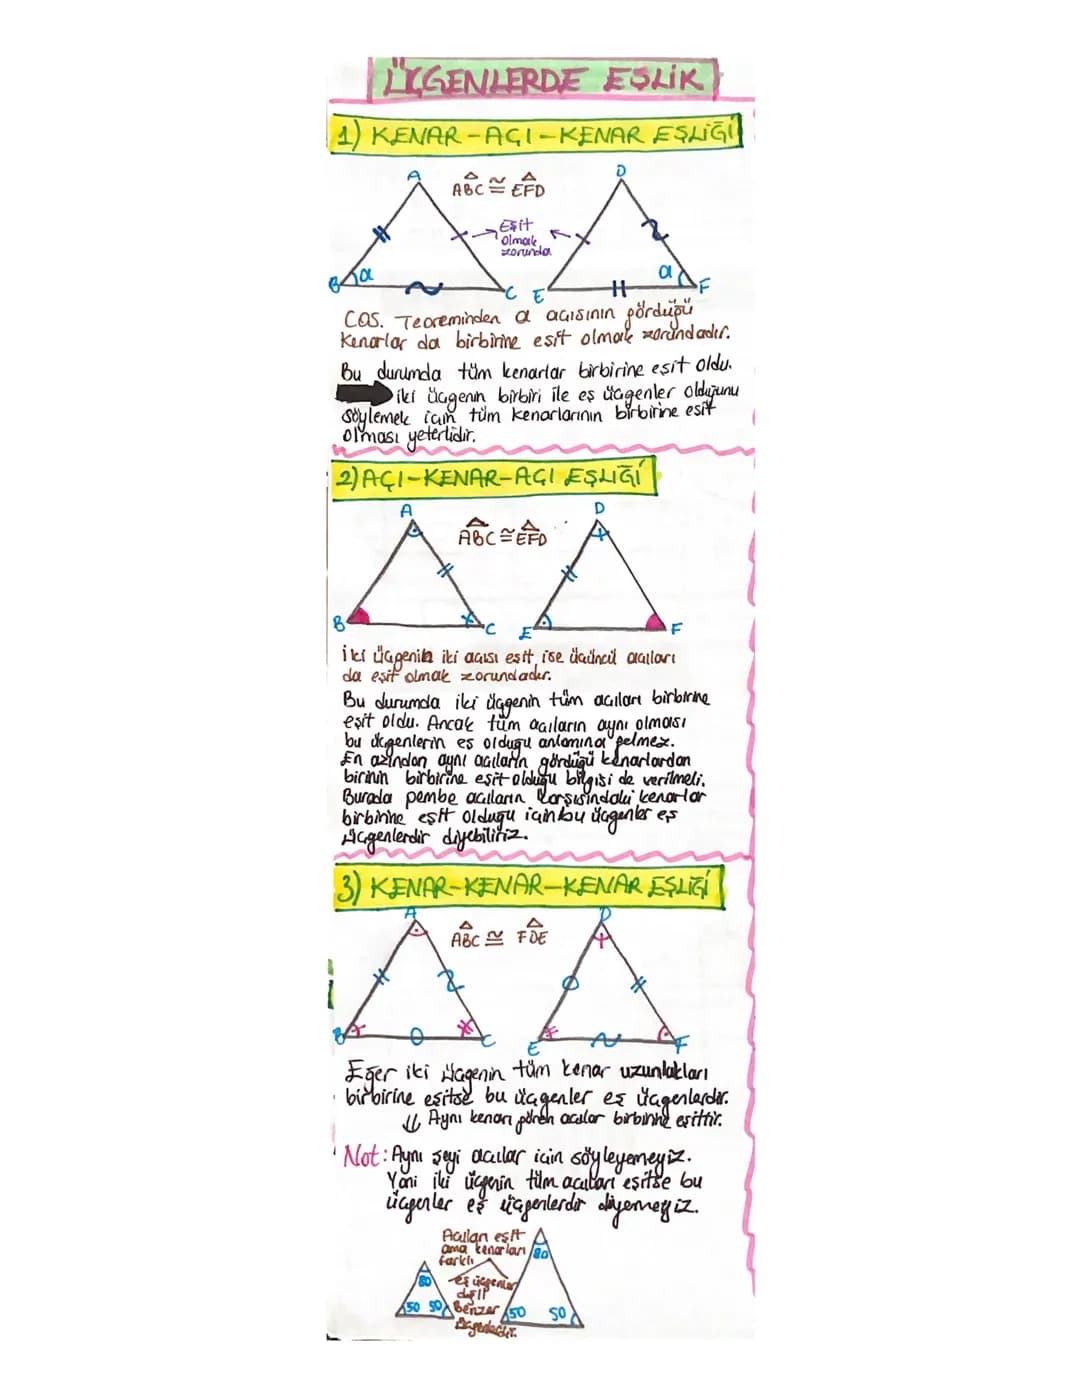 ÜÇGENLERDE EŞLİK
1) KENAR-AÇI-KENAR EŞLİĞİ
A
ABC ≅ EFD
D
Eşit
olmak
zorunda
B
α
C
E
α
F
COS. Teoreminden α açısının gördüğü
kenarlar da birbirine eşit olmak zorundadır.
Bu durumda tüm kenarlar birbirine eşit oldu.
iki üçgenin birbiri ile eş üçgenler olduğunu
söylemek için tüm kenarlarının birbirine eşit
olması yeterlidir.
2) AÇI-KENAR-AÇI EŞLİĞİ
A
ABC ≅ EFD
D
B
C
E
F
İki üçgenin iki açısı eşit ise üçüncü açıları
da eşit olmak zorundadır.
Bu durumda iki üçgenin tüm açıları birbirine
eşit oldu. Ancak tüm açıların aynı olması
bu üçgenlerin eş olduğu anlamına gelmez.
En azından aynı açıların gördüğü kenarlardan
birinin birbirine eşit olduğu bilgisi de verilmeli.
Burada pembe açıların karşısındaki kenarlar
birbirine eşit olduğu için bu üçgenler eş
üçgenlerdir diyebiliriz.
3) KENAR-KENAR-KENAR EŞLİĞİ
A
ABC ≅ FDE
D
B
C
E
F
Eğer iki üçgenin tüm kenar uzunlukları
birbirine eşitse bu üçgenler eş üçgenlerdir.
⇓ Aynı kenarı gören açılar birbirine eşittir.
Not: Aynı şeyi açılar için söyleyemeyiz.
Yani iki üçgenin tüm açıları eşitse bu
üçgenler eş üçgenlerdir diyemeyiz.
Açıları eşit
ama kenarları
farklı
80
80
eş üçgenler
değil
Benzer
üçgenlerdir.
50 50
50 50